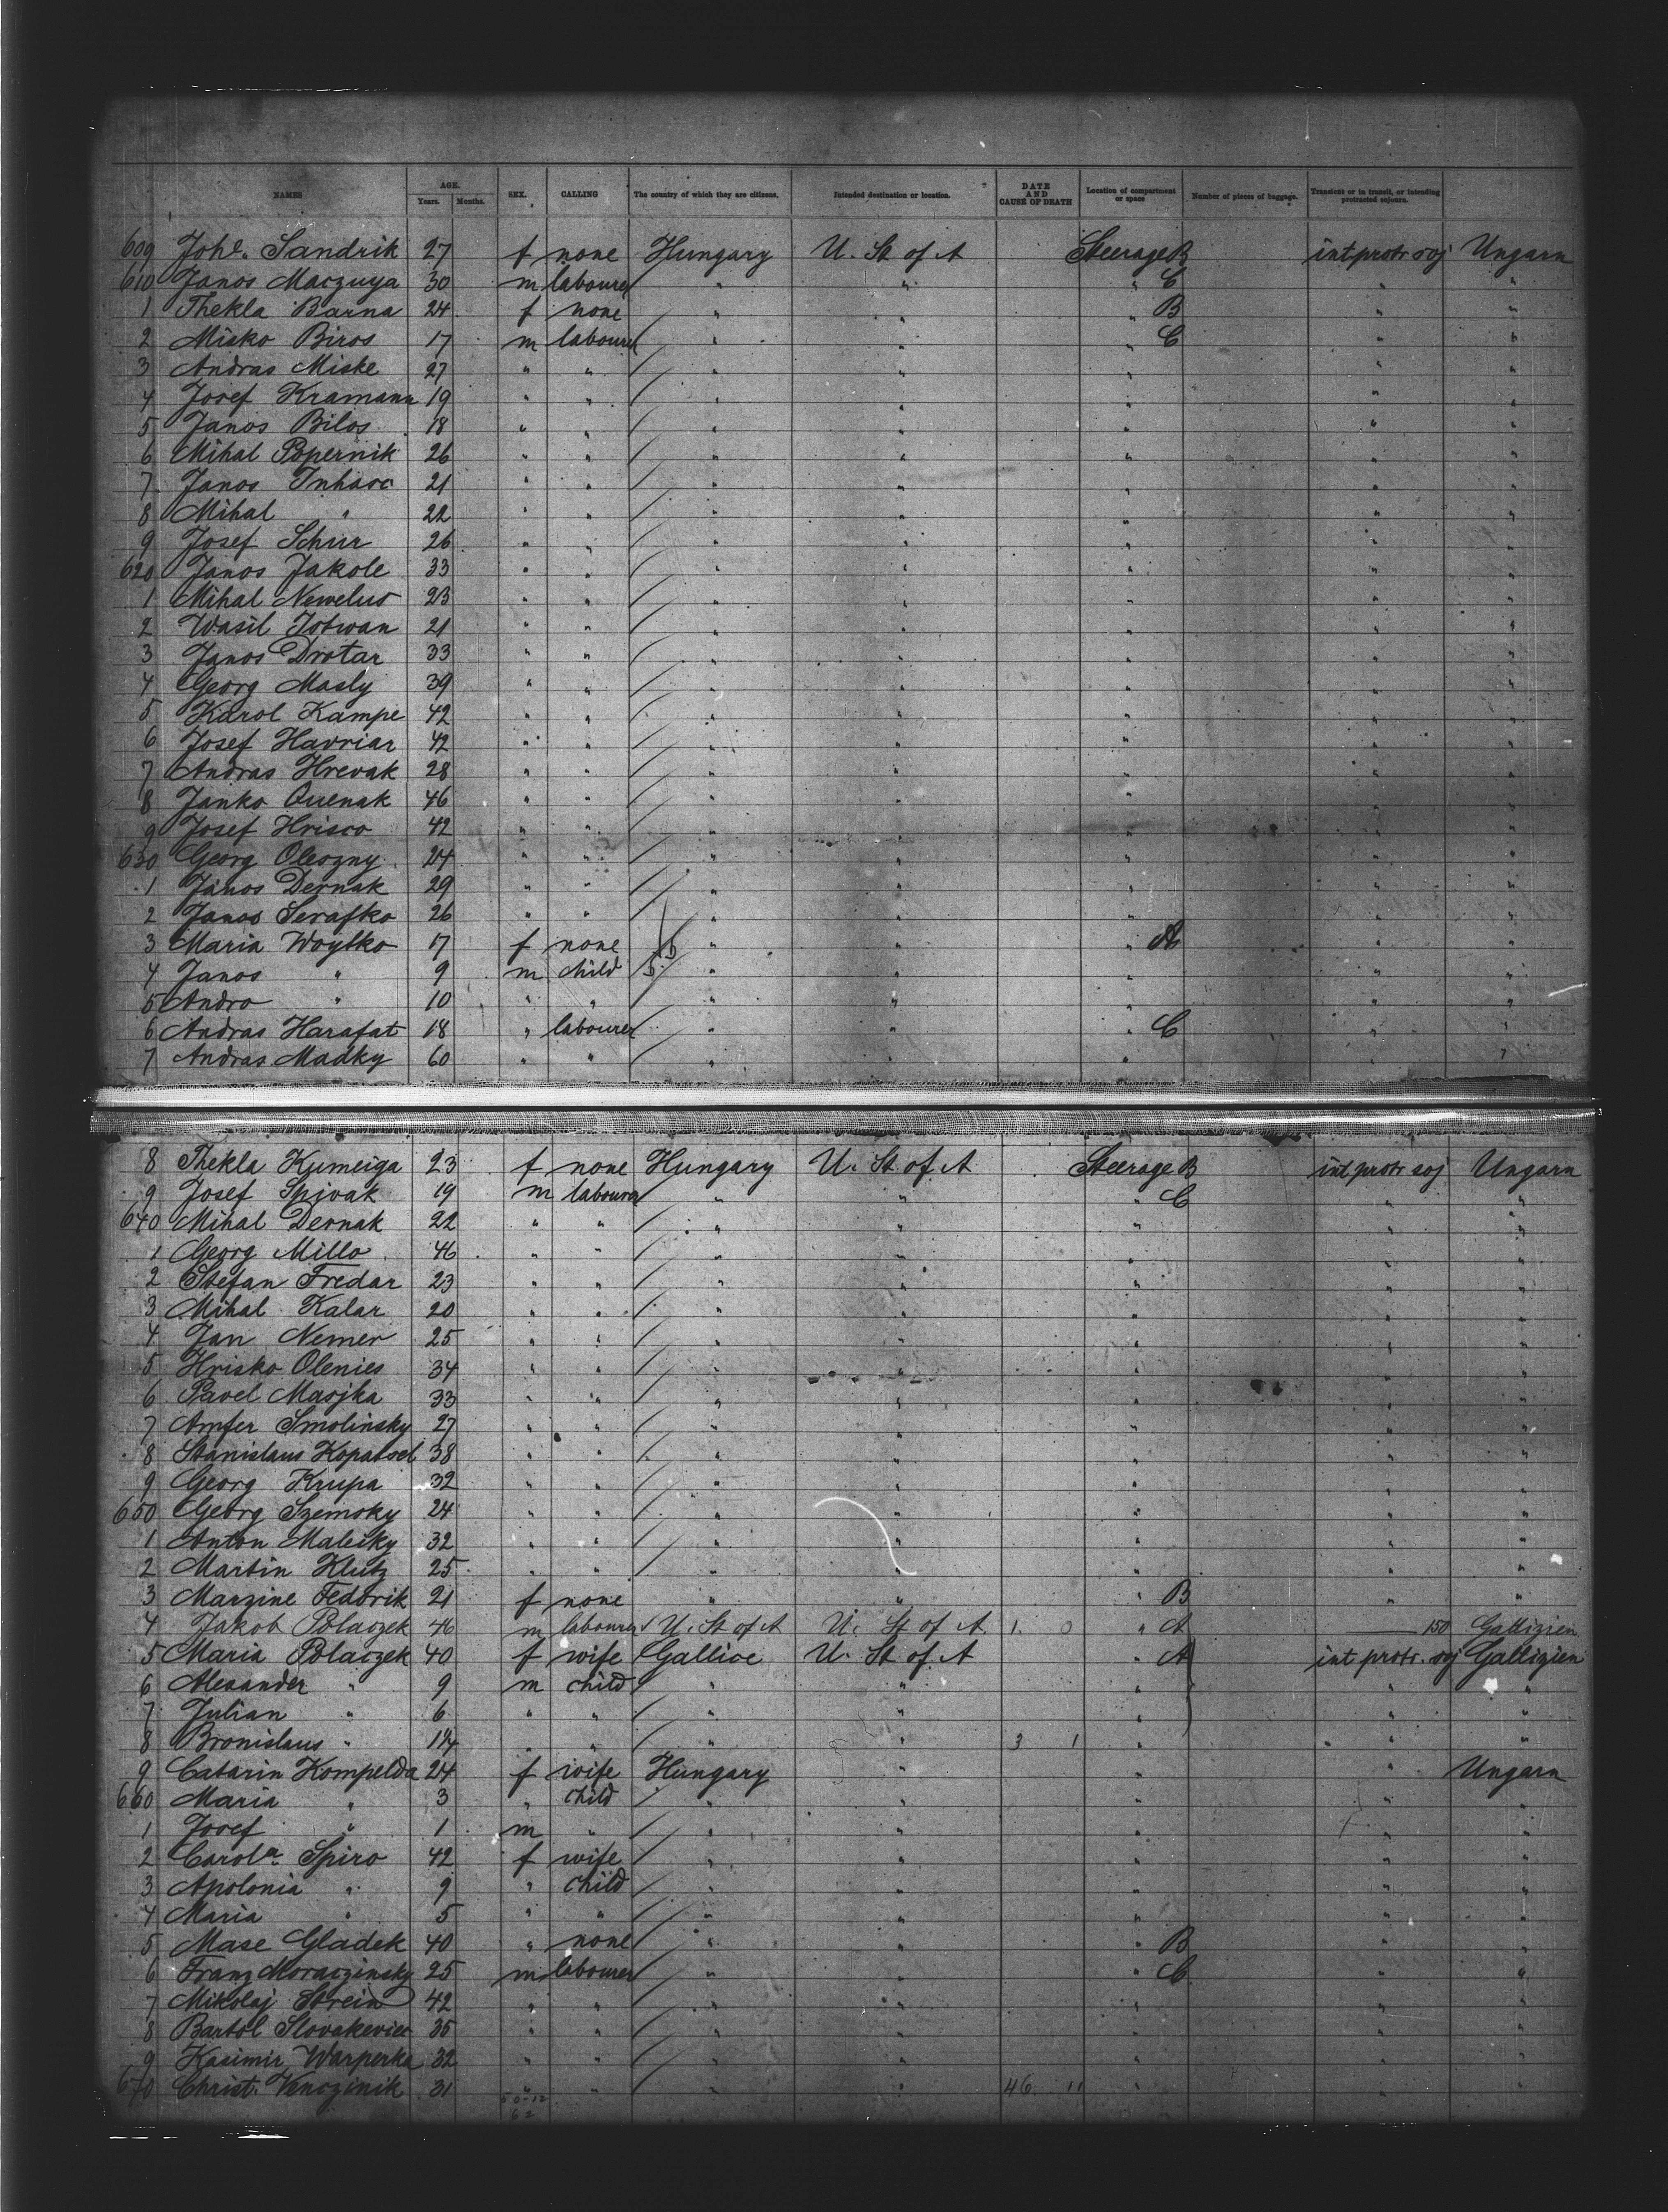 NAMES AGE. Years. Months. SEX. CALLING The country of which they are citizens. Intended destination or location. DATE AND CAUSE OF DEATH Location of compartment or space Number of pieces of baggage. Transient or in transit, or intending protracted sojourn.
609 Johe. Sandrik 27 f none Hungary U. St of A Steerage B int protr soj Ungarn
610 Janos Maczuya 30 m labourer " " " C " "
1 Thekla Barna 24 f none " " " B " "
2 Misko Biros 17 m labourer " " " C " "
3 Andras Miske 27 " " " " " " "
4 Josef Kramann 19 " " " " " " "
5 Janos Bilos 18 " " " " " " "
6 Mihal Popernik 26 " " " " " " "
7 Janos 21 " " " " " " "
8 Mihal " 22 " " " " " " "
9 Josef Schur 26 " " " " " " "
620 Janos Jakole 33 " " " " " " "
1 Mihal Newelus 23 " " " " " " "
2 Wasil Totwan 21 " " " " " " "
3 Janos Drotar 33 " " " " " " "
4 Georg Masly 39 " " " " " " "
5 Karol Kampe 42 " " " " " " "
6 Josef Havriar 42 " " " " " " "
7 Andras Hrevak 28 " " " " " " "
8 Janko Quenak 46 " " " " " " "
9 Josef Hrisco 42 " " " " " " "
630 Georg Oleszny 24 " " " " " " "
1 Janos Dernak 29 " " " " " " "
2 Janos Serafko 26 " " " " " " "
3 Maria Woytko 17 f none " " " A " "
4 Janos " 9 m child " " " " "
5 Andro " 10 " " " " " " "
6 Andras Harafat 18 " labourer " " " C " "
7 Andras Madky 60 " " " " " " "
8 Thekla Kumeiga 23 f none Hungary U. St of A Steerage B int protr soj Ungarn
9 Josef Spivak 19 m labourer " " " C " "
640 Mihal Dernak 22 " " " " " " "
1 Georg Millo 46 " " " " " " "
2 Stefan Fredar 23 " " " " " " "
3 Mihal Kalar 20 " " " " " " "
4 Jan Nemer 25 " " " " " " "
5 Hrisko Olenies 34 " " " " " " "
6 Pavel Masjka 33 " " " " " " "
7 Amfer Smolinsky 27 " " " " " " "
8 Stanislaus 38 " " " " " " "
9 Georg Krupa 32 " " " " " " "
650 Georg Szemsky 24 " " " " " " "
1 Anton Maleiky 32 " " " " " " "
2 Martin Klutz 25 " " " " " " "
3 Marzine Fedorik 21 f none " " " B " "
4 Jakob Polaczek 46 m labourer U. St of A U. St of A 1 0 " A 150 Gallizien
5 Maria Polaczek 40 f wife Gallice U. St of A " A int protr. soj Gallizien
6 Alexander " 9 m child " " " " "
7 Julian " 6 " " " " " " "
8 Bronislaus " 14 " " " " 3 1 " " "
9 Catarin Kompelda 24 f wife Hungary " " " Ungarn
660 Maria " 3 " child " " " " "
1 Josef " 1 m " " " " " "
2 Carola Spiro 42 f wife " " " " "
3 Apolonia " 9 " child " " " " "
4 Maria " 5 " " " " " " "
5 Mase Gladek 40 " none " " " B " "
6 Franz Moraczinsky 25 m labourer " " " C " "
7 Mikolaj Strein 42 " " " " " " "
8 Bartol Slovakeviec 35 " " " " " " "
9 Kasimir Warperka 32 " " " " " " "
670 Christ. Venczinik 31 " " " " 46 11 " " "
50-12
62